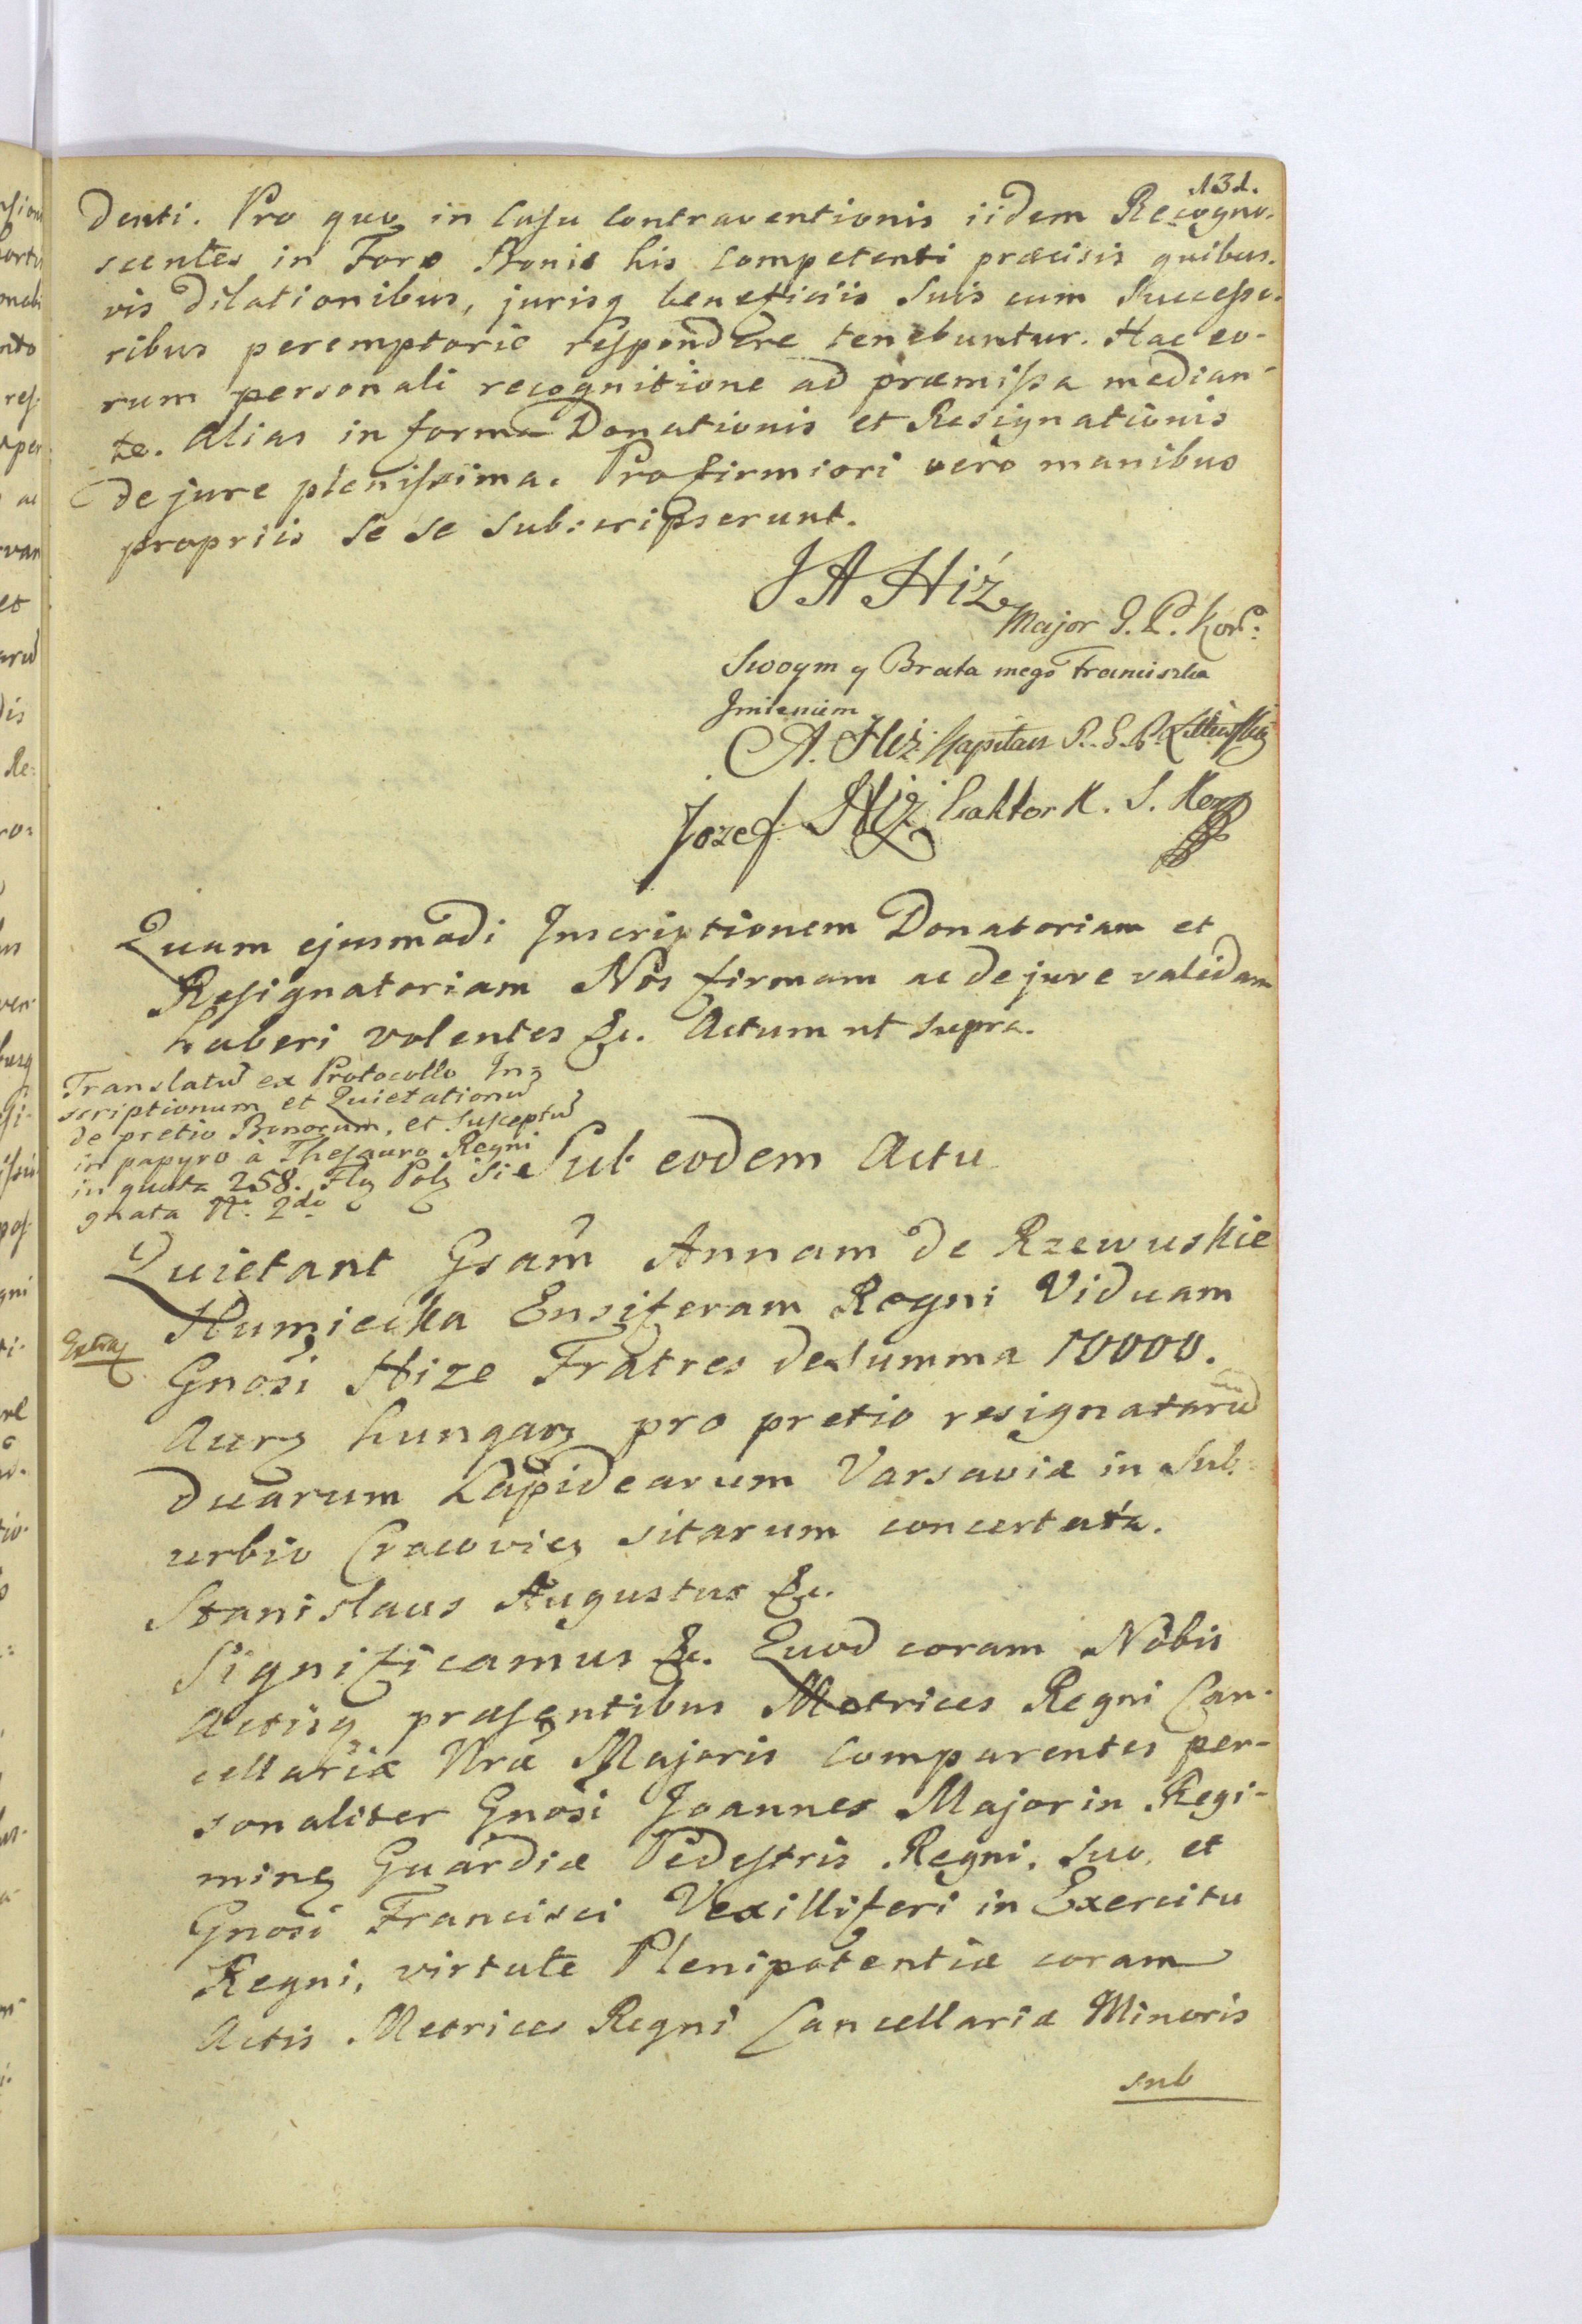 131.
denti. Pro quo in Casu Contraventionis iidem Recogno-
scentes in Foro Bonis his Competenti præcisis quibus-
vis dilationibus, jurisq beneficiis Suis cum Successo-
ribus peremptorie respondere tenebuntur. Hac eo-
rum personali recognitione ad præmissa median-
te. Alias in forma Donationis et Resignationis
de jure plenissima. Pro firmiori vero manibus
propriis Se Se Subscripserunt.
J A Hiż
Major G. P. Kor:
Swoym y Brata mego Franciszka
Jmieniem
A. Hiż Kapitan
Jozef Hiż K. S. Kor
Quam ejusmodi Inscriptionem Donatoriam et
Resignatoriam Nos firmam ac de jure validam
haberi volentes &c. Actum ut Supra.
Translatū ex Protocollo In-
scriptionum et Quietationū
de pretio Bonorum, et Susceptū
in papyro à Thesauro Regni
in quota 258. Flg Polg Si-
gnata N. 2do
Sub eodem Actu
Quietant Gsam̄ Annam de Rzewuskie
Humiecka Ensiferam Regni Viduam
Gnosi Hize Fratres de Summa 10000.
Aurg hungarg pro pretio resignatarū
duarum Lapidearum Varsaviæ in Sub-
urbio Cracovieg sitarum concertata.
Stanislaus Augustus &c.
Significamus &c. Quod coram Nobis
Actisq præsentibus Metrices Regni Can-
cellariæ Nræ Majoris Comparentes per-
sonaliter Gnosi Joannes Major in Regi-
mine Guardiæ Pedestris Regni, Suo, et
Gnosi Francisci Vexilliferi in Exercitu
Regni, virtute Plenipotentiæ coram
Actis Metrices Regni Cancellariæ Minoris
sub